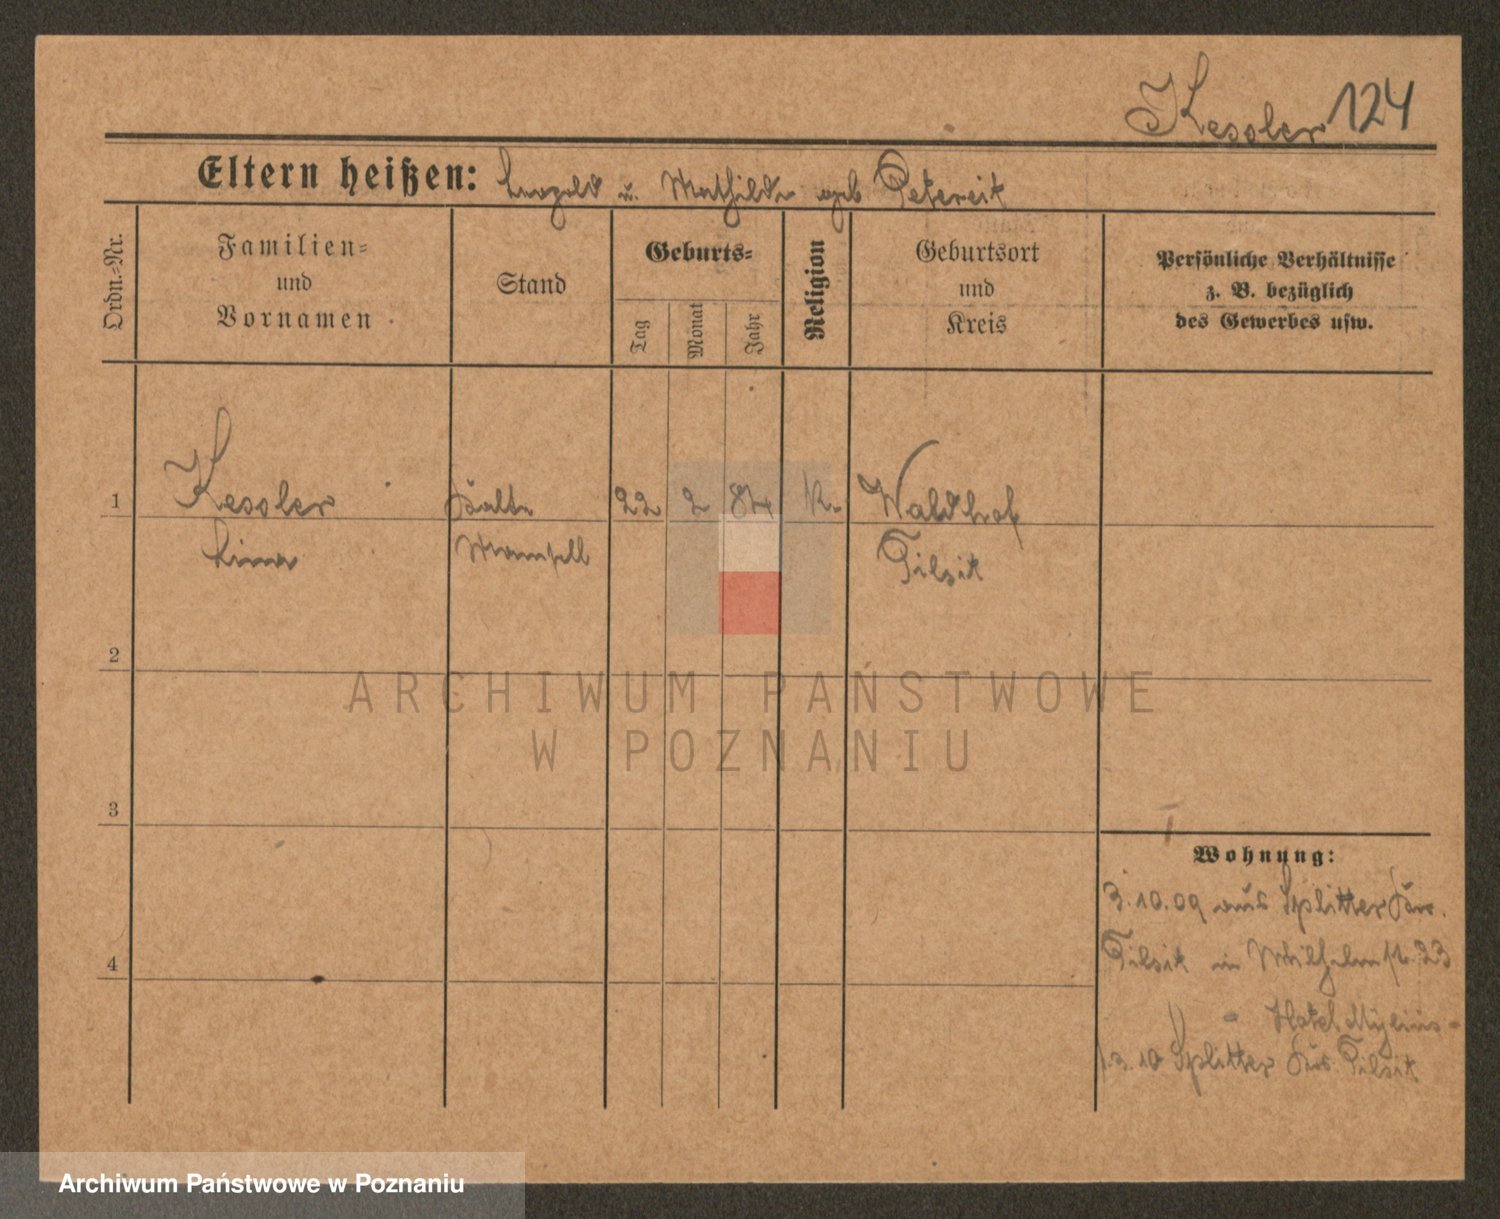 Kessler 124
Eltern heißen: Leopold u. Mathilde geb Petereit
Ordn.-Nr.
Familien-
und
Vornamen
Stand
Geburts-
Tag
Monat
Jahr
Religion
Geburtsort
und
Kreis
Persönliche Verhältnisse
z. B. bezüglich
des Gewerbes usw.
1
Kessler
Lina
Kalte
Mamsell
22 2 84
Waldhof
Tilsit
2
ARCHIWUM PAŃSTWOWE
W POZNANIU
3
Wohnung:
3.10.09 aus Splitter Krs.
Tilsit in Wilhelmstr. 23
- Hotel Mylius -
Splitter Krs. Tilsit
4
Archiwum Państwowe w Poznaniu